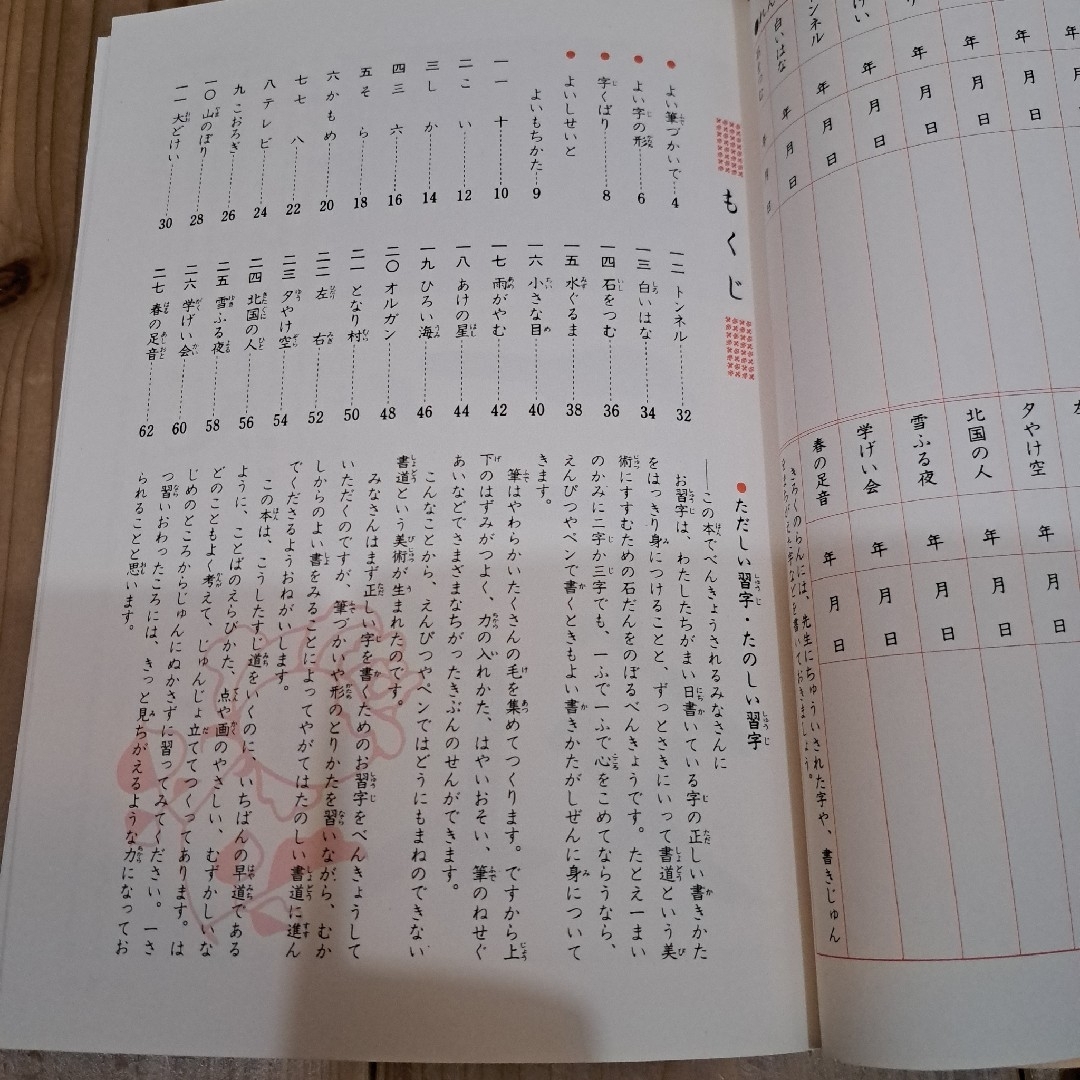 もくじ
よい筆づかいで 4
よい字の形 6
字くばり 8
よいしせいと
よいもちかた 9
一 十 10
二 こい 12
三 しか 14
四 三六 16
五 そら 18
六 かもめ 20
七 七八 22
八 テレビ 24
九 こおろぎ 26
一〇 山のぼり 28
一一 大どけい 30
一二 トンネル 32
一三 白いはな 34
一四 石をつむ 36
一五 水ぐるま 38
一六 小さな目 40
一七 雨がやむ 42
一八 あけの星 44
一九 ひろい海 46
二〇 オルガン 48
二一 となり村 50
二二 左右 52
二三 夕やけ空 54
二四 北国の人 56
二五 雪ふる夜 58
二六 学げい会 60
二七 春の足音 62
ただしい習字・たのしい習字
──この本でべんきょうされるみなさんに
お習字は、わたしたちがまい日書いている字の正しい書きかた
をはっきり身につけることと、ずっとさきにいって書道という美
術にすすむための石だんをのぼるべんきょうです。たとえ一まい
のかみに二字か三字でも、一ふで一ふで心をこめてならうなら、
えんぴつやペンで書くときもよい書きかたがしぜんに身について
きます。
筆はやわらかいたくさんの毛を集めてつくります。ですから上
下のはずみがつよく、力の入れかた、はやいおそい、筆のねせぐ
あいなどでさまざまなちがったきぶんのせんができます。
こんなことから、えんぴつやペンではどうにもまねのできない
書道という美術が生まれたのです。
みなさんはまず正しい字を書くためのお習字をべんきょうして
いただくのですが、筆づかいや形のとりかたを習いながら、むか
しからのよい書をみることによってやがてはたのしい書道に進ん
でくださるようおねがいします。
この本は、こうしたすじ道をいくのに、いちばんの早道である
ように、ことばのえらびかた、点や画のやさしい、むずかしいな
どのこともよく考えて、じゅんじょ立ててつくってあります。は
じめのところからじゅんにぬかさずに習ってみてください。一さ
つ習いおわったころには、きっと見ちがえるような力になってお
られることと思います。
白いはな
年 月 日
年 月 日
年 月 日
年 月 日
年 月 日
夕やけ空 年 月 日
北国の人 年 月 日
雪ふる夜 年 月 日
学げい会 年 月 日
春の足音 年 月 日
きろくのらんには、先生にちゅういされた字や、書きじゅん